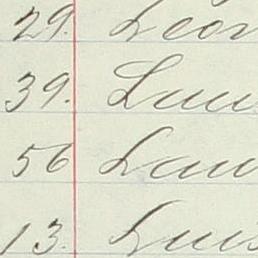 29. Leon
39. Luu
56 Lau
13. Luis